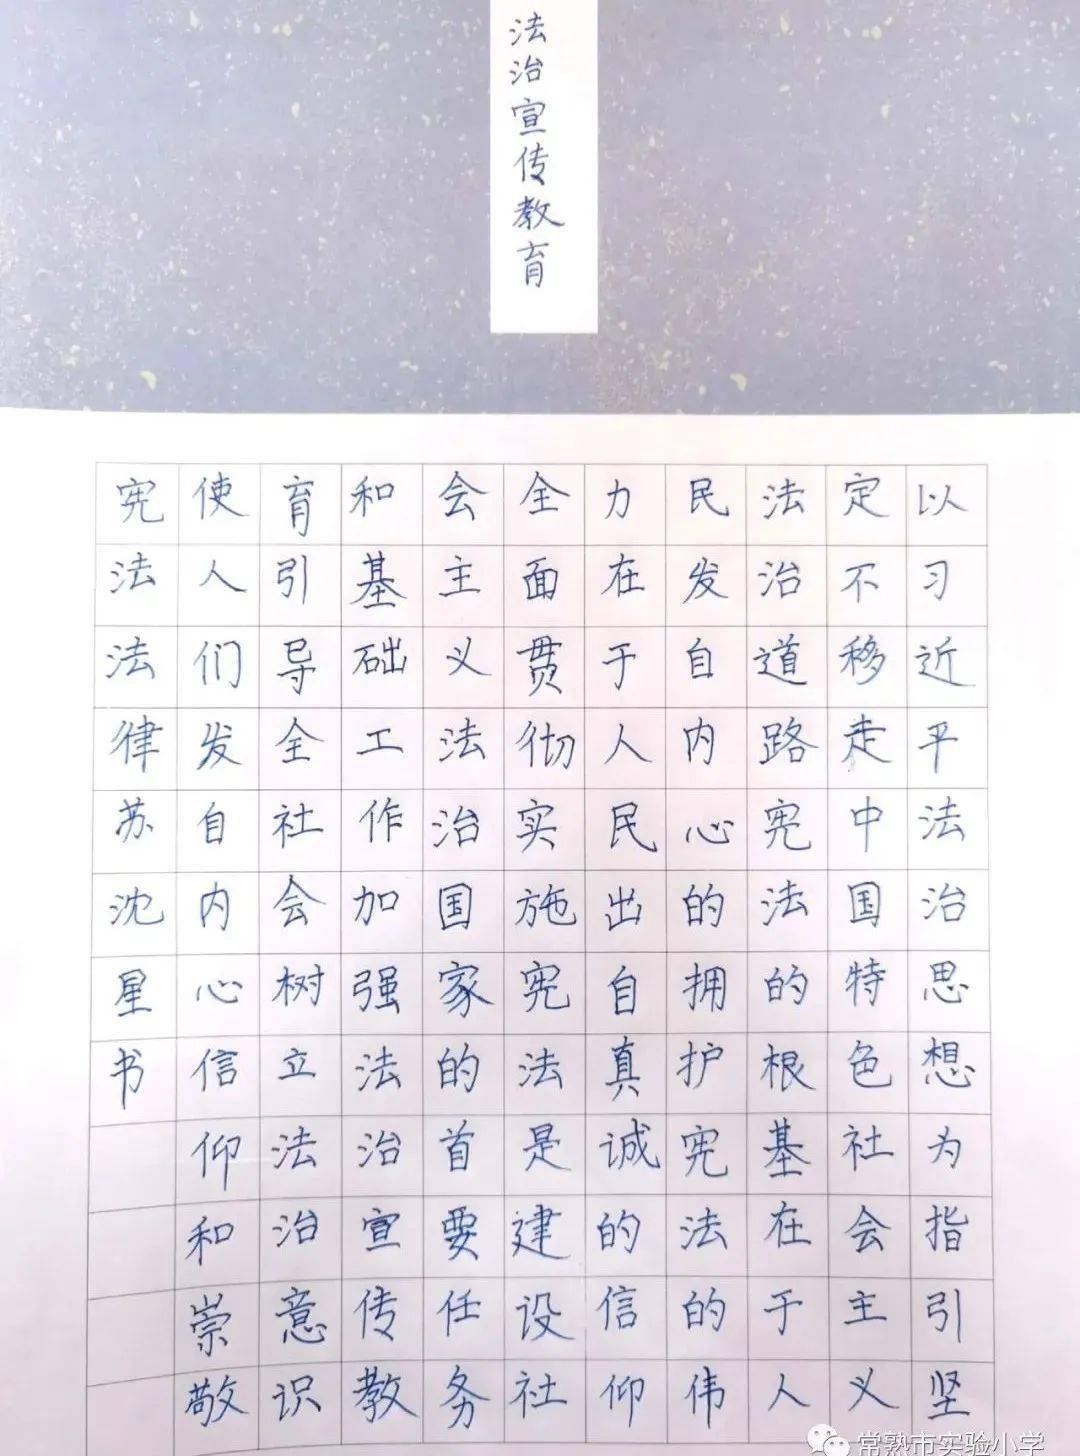 法治宣传教育
以习近平法治思想为指引坚
定不移走中国特色社会主义
法治道路宪法的根基在于人
民发自内心的拥护宪法的伟
力在于人民出自真诚的信仰
全面贯彻实施宪法是建设社
会主义法治国家的首要任务
和基础工作加强法治宣传教
育引导全社会树立法治意识
使人们发自内心信仰和崇敬
宪法法律苏沈星书
常熟市实验小学